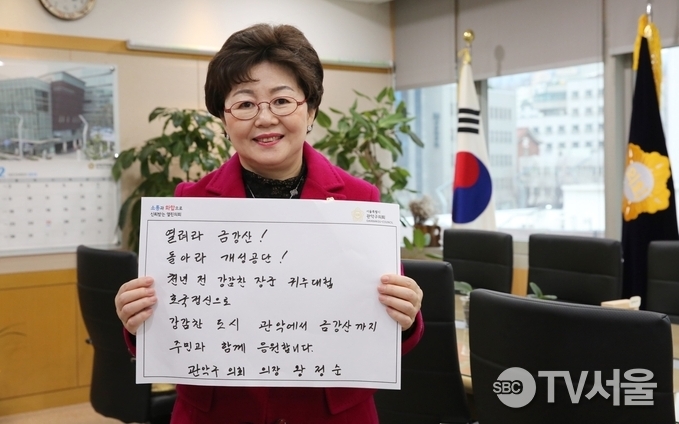 소통과 화합으로
신뢰받는 열린의회
서울특별시
관악구의회
열려라 금강산!
돌아라 개성공단!
천년 전 강감찬 장군 귀주대첩
호국정신으로
강감찬 도시 관악에서 금강산까지
주민과 함께 응원합니다.
관악구 의회 의장 왕정순
SBC TV서울